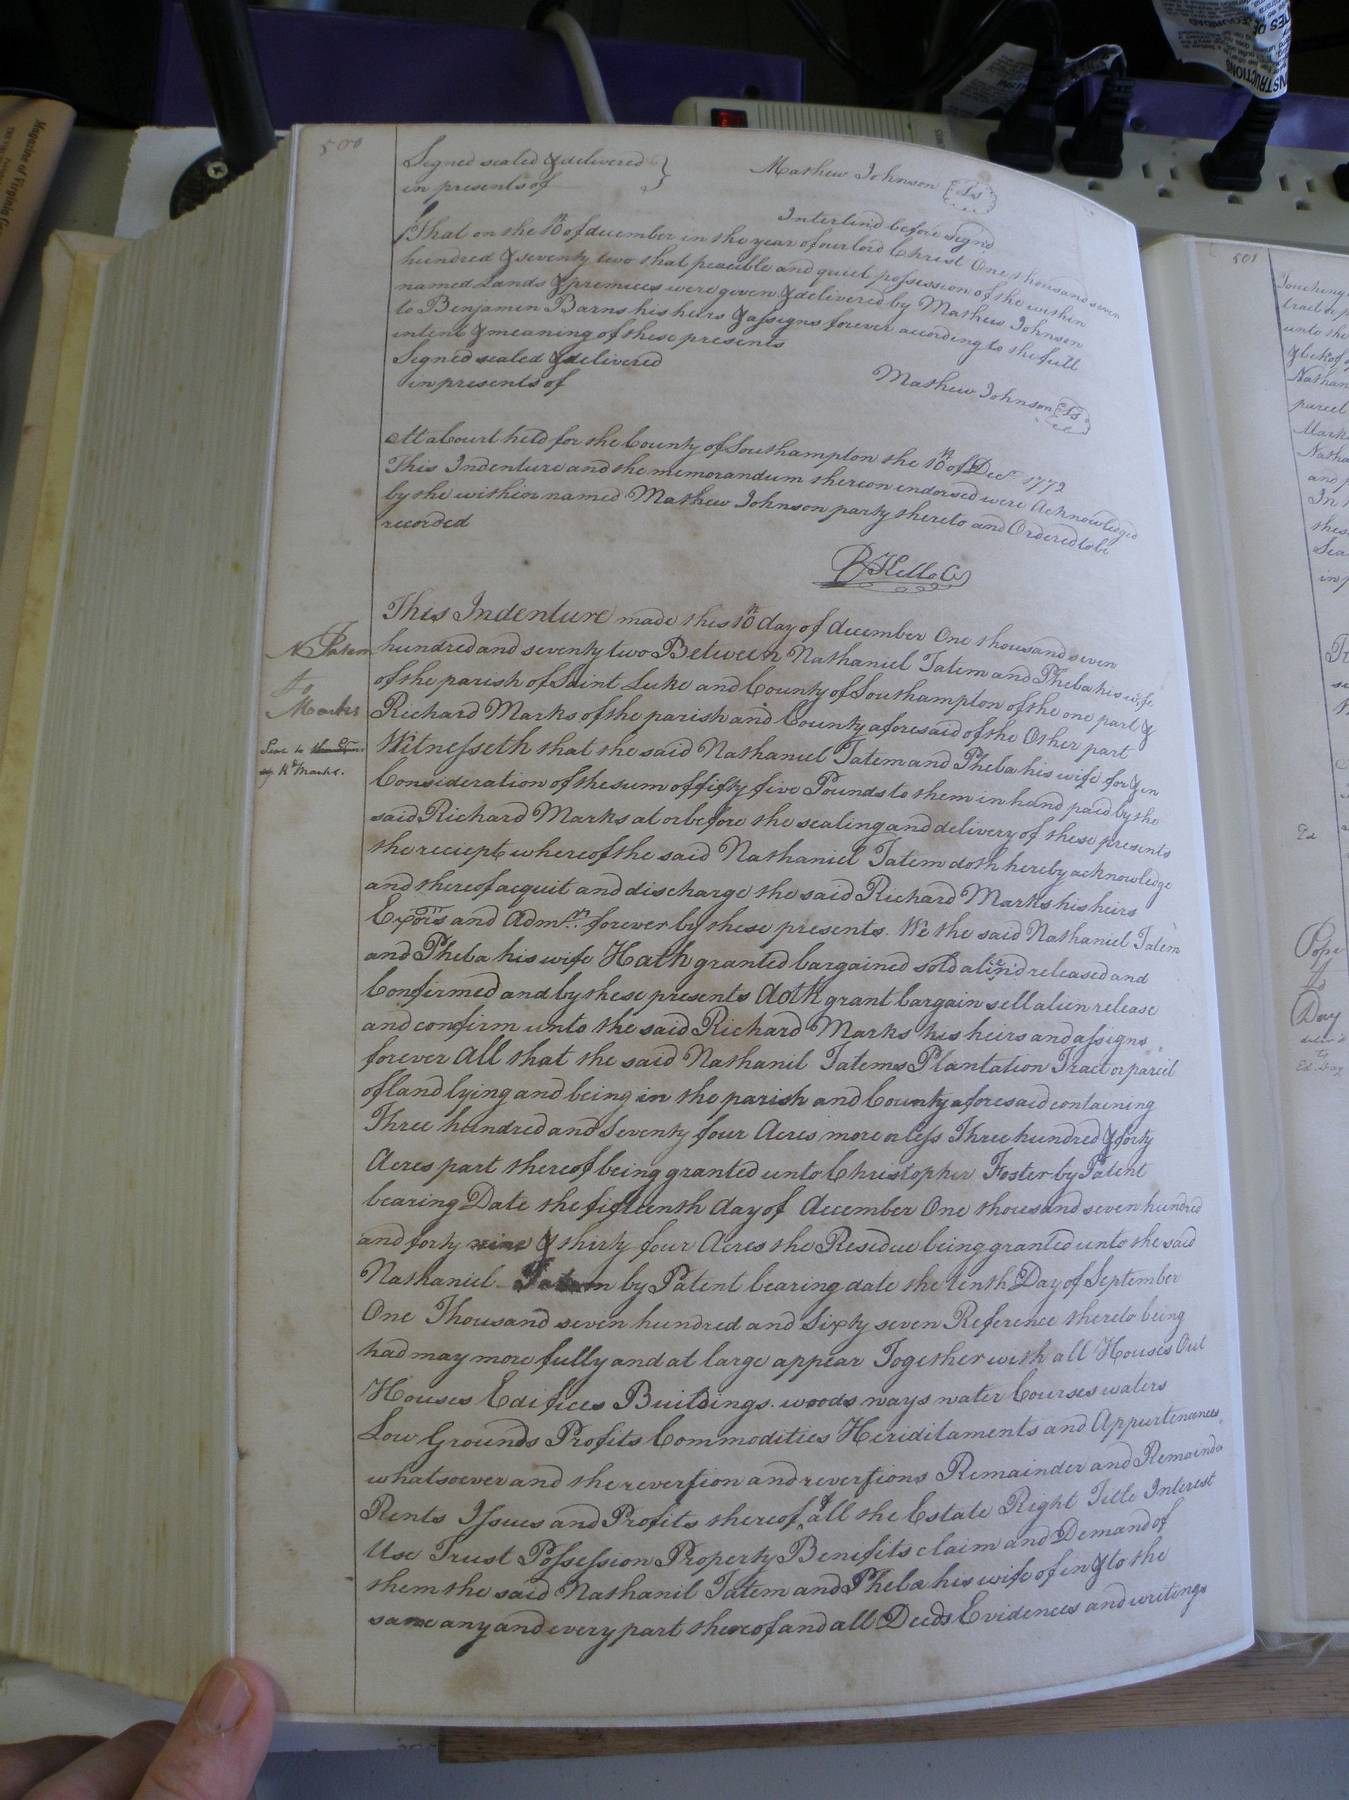 500
Signed sealed & delivered
in presents of
Mathew Johnson Ls
Interlin'd before signd
That on the 10th of december in the year of our lord Christ One thousand seven
hundred & seventy two that peaceble and quiet possession of the within
named Lands & premices were given & delivered by Mathew Johnson
to Benjamin Barns his heirs & assigns forever according to the full
intent & meaning of these presents
Signed sealed & delivered
in presents of
Mathew Johnson Ls
At a Court held for the County of Southampton the 10th of Decr 1772
This Indenture and the memorandum thereon endorsed were Acknowledged
by the within named Mathew Johnson party thereto and Ordered to be
recorded
N Tatem
To
Marks
R Marks.
This Indenture made this 10th day of december One thousand seven
hundred and seventy two Between Nathaniel Tatem and Pheba his wife
of the parish of Saint Luke and County of Southampton of the one part &
Richard Marks of the parish and County aforesaid of the Other part
Witnesseth that the said Nathaniel Tatem and Pheba his wife for & in
Consideration of the sum of fifty five Pounds to them in hand paid by the
said Richard Marks at or before the sealing and delivery of these presents
the reciept whereof the said Nathaniel Tatem doth hereby acknowledge
and thereof acquit and discharge the said Richard Marks his heirs
Exors and Admrs forever by these presents. We the said Nathaniel Tatem
and Pheba his wife Hath granted bargained sold alien'd released and
Confirmed and by these presents doth grant bargain sell alien release
and confirm unto the said Richard Marks his heirs and assigns
forever All that the said Nathanil Tatems Plantation Tract or parcel
of land lying and being in the parish and County aforesaid containing
Three hundred and Seventy four Acres more or less Three hundred & forty
Acres part thereof being granted unto Christopher Foster by Patent
bearing Date the fifteenth day of december One thousand seven hundred
and forty nine & thirty four Acres the Residue being granted unto the said
Nathaniel Tatem by Patent bearing date the tenth Day of September
One Thousand seven hundred and Sixty seven Reference thereto being
had may more fully and at large appear Together with all Houses Out
Houses Edifices Buildings. woods ways water Courses waters
Low Grounds Profits Commodities Heriditaments and Appurtenances
whatsoever and the revertion and revertions Remainder and Remainder
Rents Issues and Profits thereof & all the Estate Right Title Interest
Use Trust Possession Property Benifits claim and Demand of
them the said Nathanil Tatem and Pheba his wife of in & to the
same any and every part thereof and all Deeds Evidences and writings
501
Touching
unto the
Nathan
parcel
and
In
Pope
To
Day
to
Magazine of Virginia
INSTRUCTIONS